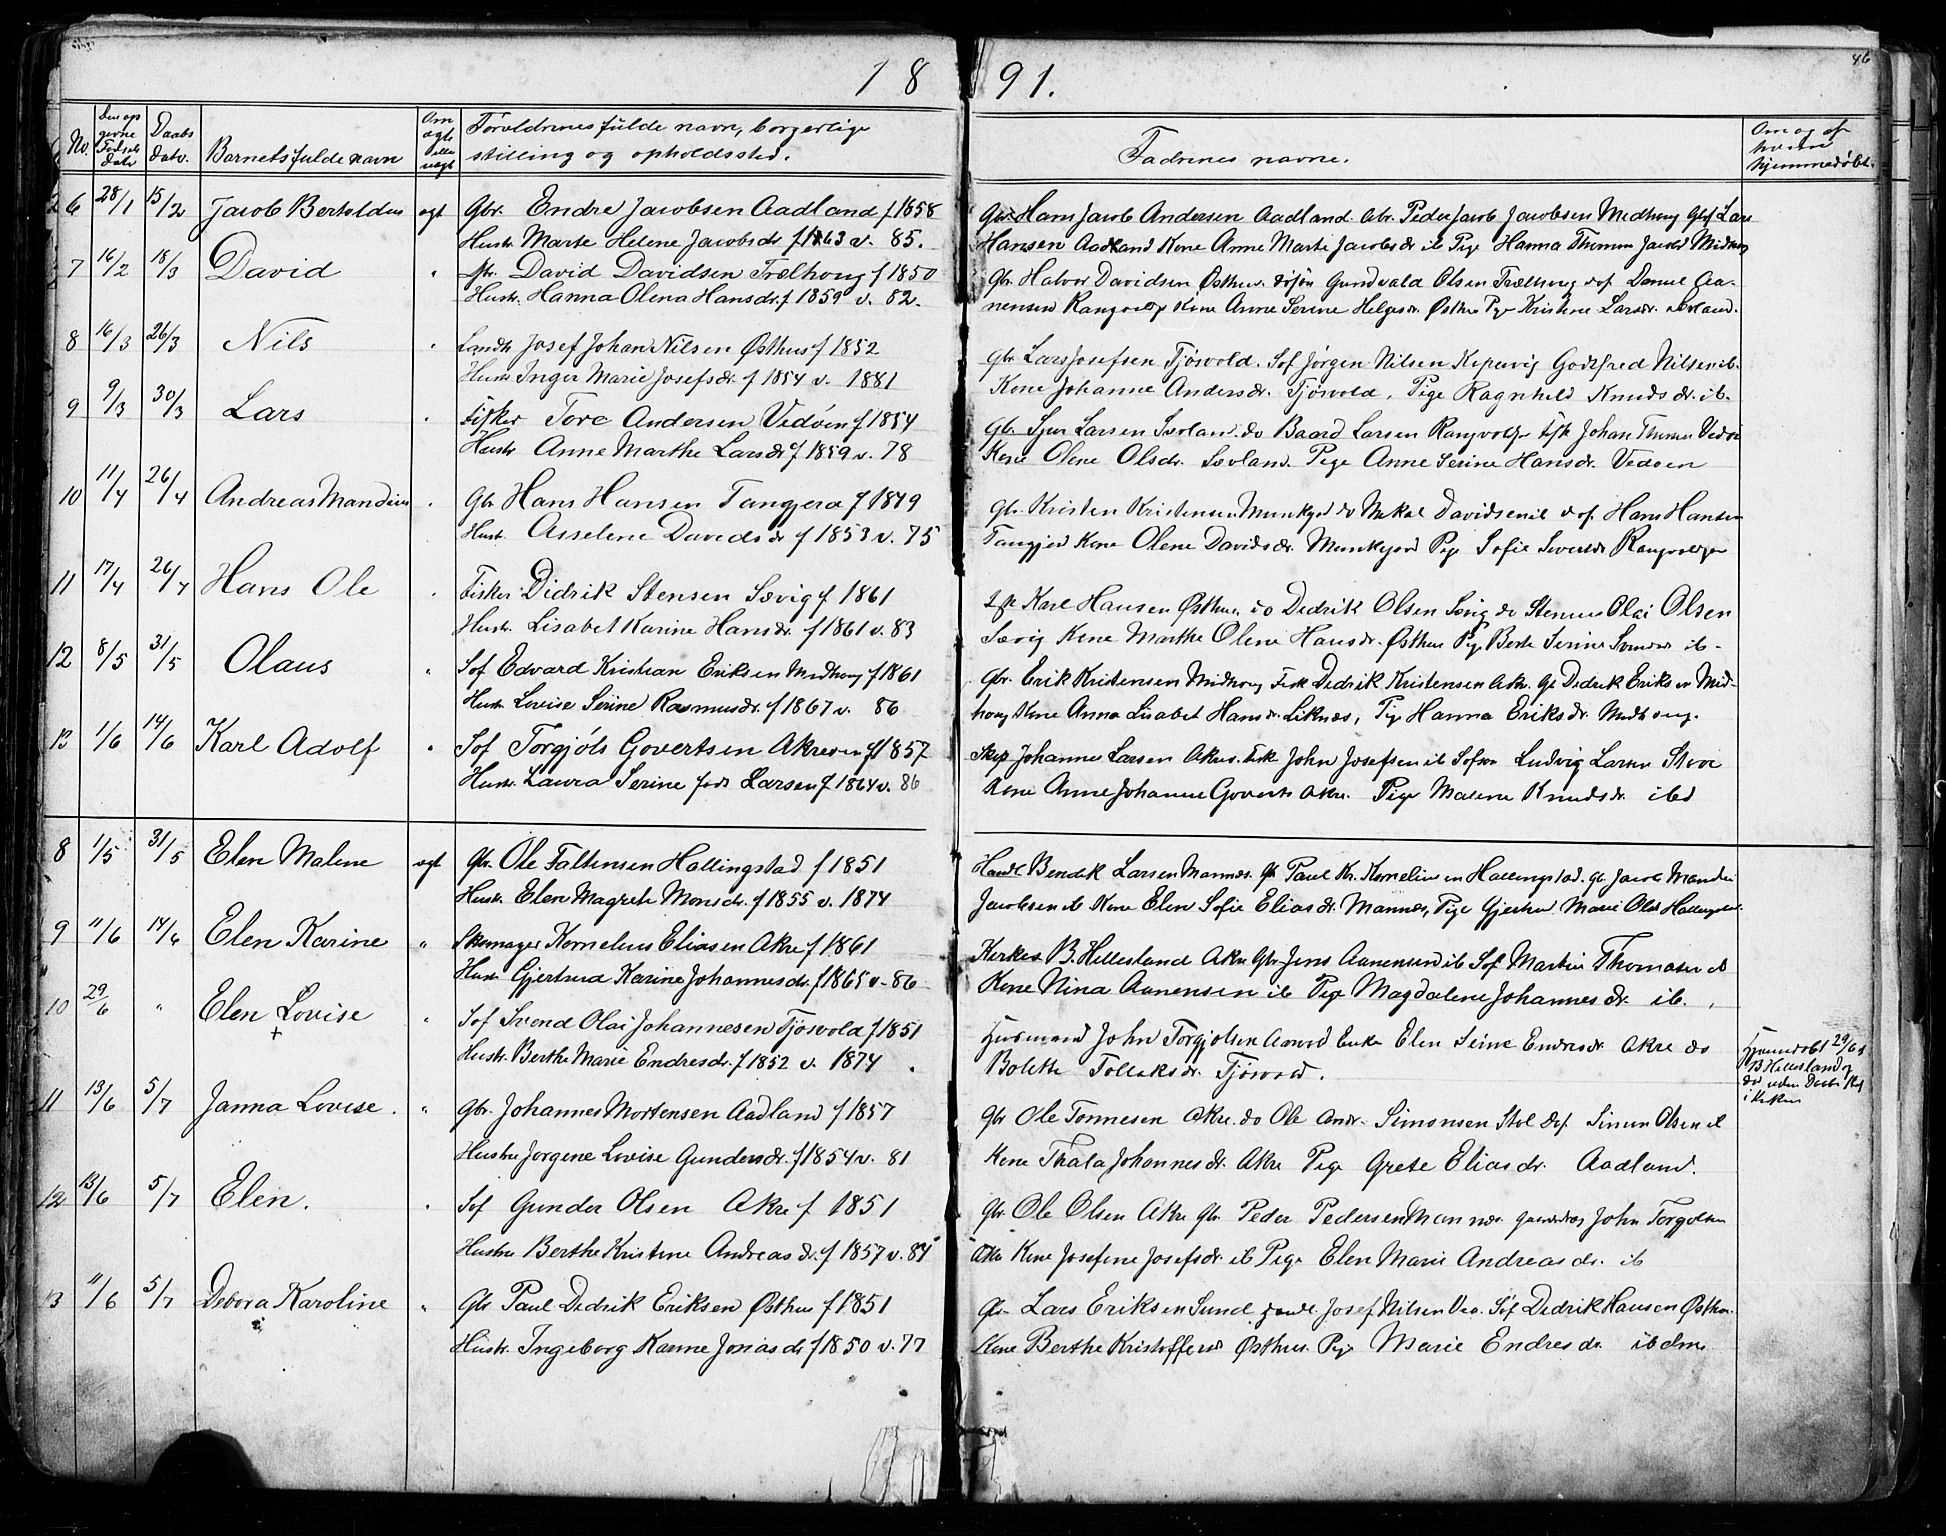 1891.
46
No.
Den op
givne
Fødsels
dato
Daabs
dato.
Barnets fulde navn
Om
ægte
eller
uægt
Forældrenes fulde navn, borgerlige
stilling og opholdssted.
Fadrenes navne.
Om og af
hvem
hjemmedøbt.
6 28/1 15/2 Jacob Bertoldus ægt Gbr. Endre Jacobsen Aadland f 1858 Gbr. Hans Jacob Andersen Aadland. Gbr. Peder Jacob Jacobsen Midhoug Lars
Hustr. Marte Helene Jacobsdr. f 1863 v. 85. Hansen Aadland Kone Anne Marte Jacobsdr ib Pige Hanna Jacobsd Midhoug
7 16/2 18/3 David " David Davidsen Trælhoug f 1850 Gbr. Halvor Davidsen Østhus. Gundvald Olsen Trælhoug Daniel Aa-
Hustr. Hanna Olena Hansdr. f 1859 v. 82. nensen Kone Anne Serine Helgesdr. Østhus Pige Kristine Larsdr.
8 16/3 26/3 Nils " Landh Josef Johan Nilsen Østhus f 1852 gbr. Lars Josefsen Tjøsvold. Sof Jørgen Nilsen Kopervig Godtfred Nilsen ib.
Hustr Inger Marie Josefsdr. f 1854 v. 1881 Kone Johanne Andersdr. Tjøsvold, Pige Ragnhild Knudsdr. ib.
9 9/3 30/3 Lars " Fisker Tore Andersen Vedøen f 1854 gb. Larsen Sævland do Baard Larsen Johan Vedø
Hustr Anne Marthe Larsdr f 1859 v. 78 Kone Olene Olsdr. Sævland. Pige Anne Serine Hansdr. Vedøen
10 11/4 26/4 Andreas Mandius " Gbr Hans Hansen Tangjerd f 1849 gb. Kristen Kristensen Munkejord do Mikal Davidsen ib Hans Hansen
Hustr. Asselene Davidsdr f 1853 v. 75 Tangjerd Kone Olene Davidsdr. Munkejord Pige Sofie
11 17/4 26/4 Hans Ole " Fisker Didrik Stensen Sævig f 1861 Karl Hansen Østhus do Didrik Olsen Sævig do Olai Olsen
Hustr. Lisabet Karine Hansdr. f 1861 v. 83 Sævig Kone Marthe Olene Hansdr. Østhus Pige Berte Serine ib.
12 8/5 31/5 Olaus " Sof Edvard Kristian Eriksen Midhoug f 1861 gbr. Erik Kristensen Midhoug Fisk Didrik Kristensen Akre. Gb Didrik Eriksen Mid-
Hustr Lovise Serine Rasmusdr. f 1867 v. 86 houg Kone Anna Lisabet Hansdr. Liknæs, Pige Hanna Eriksdr. Midhoug.
13 1/6 14/6 Karl Adolf " Sof Torgjøls Govertsen Akreen f 1857 Skip Johannes Larsen Akre. Fisk John Josefsen ib Ludvig Larsen
Hustr. Laura Serine født Larsen f 1864 v. 86 Kone Anne Johanne Akre. Pige Malene Knudsdr. ibd
8 1/5 31/5 Elen Malene ægt Gbr. Ole Faltinsen Hallingstad f 1851 Bendik Larsen Mannes. Gb Paul Kr. Korneliusen Hallingstad. gb Jacob
Hustr. Elen Magrete Monsdr. f 1855 v. 1874 Jacobsen ib Kone Elen Sofie Eliasdr. Mannes, Pige Marie
9 11/6 14/6 Elen Karine " Skomager Kornelius Eliasen Akre f 1861 B. Hellesland Akre Gbr Jens Aanensen ib Sof Martin Thomasen ib
Hustr Gjertrud Karine Johannesdr. f 1865 v. 86 Kone Nina Aanensen ib Pige Magdalene Johannesdr. ib.
10 29/6 " Elen Lovise + " Sof Svend Olai Johannesen Tjøsvold f 1851 Husmand John Torgjølsen Elen Seine Endresdr. Akre do
Hustr. Berthe Marie Endresdr. f 1852 v. 1874. Bolette Tollaksdr. Tjøsvold.
Hjemmedøbt 29/6 af
B Hellesland og
død uden Daabs
i Kirken
11 13/6 5/7 Janna Lovise. " gbr. Johannes Mortensen Aadland f 1857 gbr Ole Tonnesen Akre do Ole Andr. Simonsen Stol Simon Olsen ib
Hustru Jørgene Lovise Gundersdr. f 1854 v. 81 Kone Thala Johannesdr. Akre Pige Grete Eliasdr. Aadland.
12 13/6 5/7 Elen. " Sof Gunder Olsen Akre f 1851 gbr. Ole Olsen Akre gbr. Peder Pedersen Mannes. John Torgjølsen
Hustru Berthe Kristine Andreasdr. f 1857 v. 84 Akre Kone Josefine Josefsdr. ib Pige Elen Marie Andreasdr. ib
13 11/6 5/7 Debora Karoline " Gbr Paul Didrik Eriksen Østhus f 1851 gbr. Lars Eriksen Sund Josef Nilsen Vea. Sof Didrik Hansen Østhus.
Hustr. Ingeborg Karine Jonasdr f 1850 v. 77 Kone Berthe Østhus. Pige Marie Endresdr. ibdm